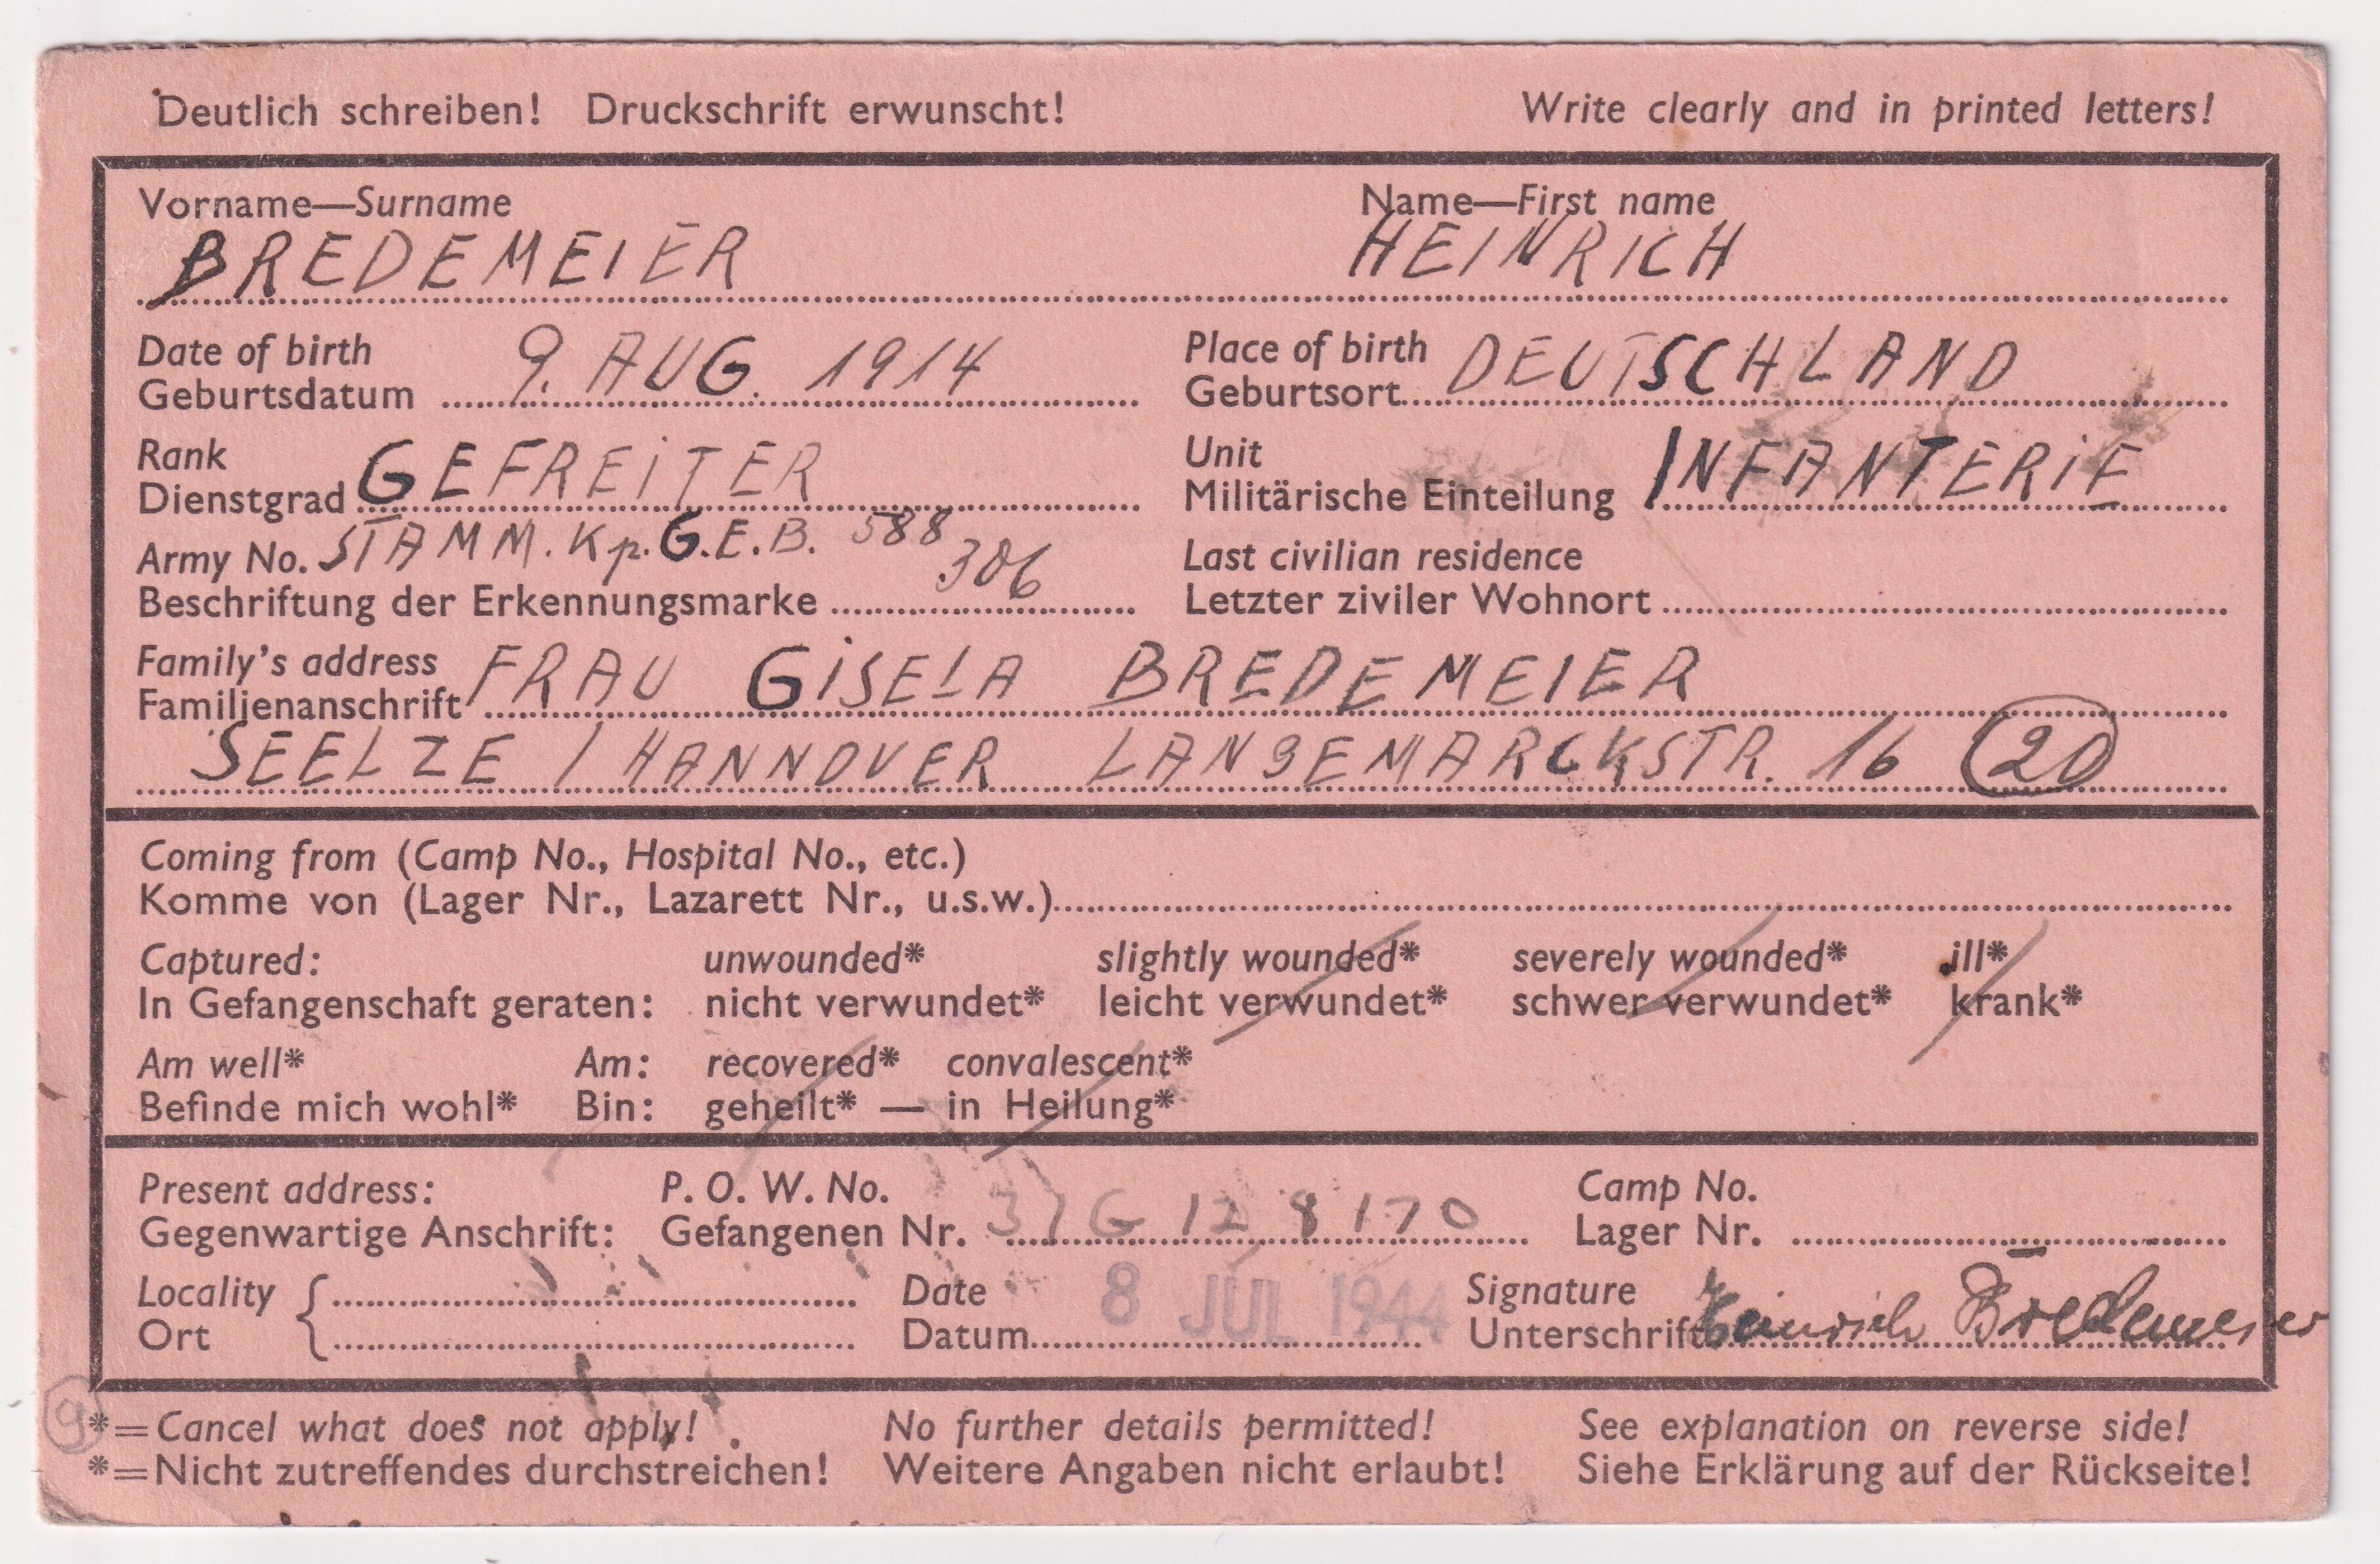 Deutlich schreiben! Druckschrift erwunscht! Write clearly and in printed letters!
Vorname—Surname Name—First name
BREDEMEIER HEINRICH
Date of birth 9. AUG. 1914 Place of birth DEUTSCHLAND
Geburtsdatum Geburtsort
Rank GEFREITER Unit INFANTERIE
Dienstgrad Militärische Einteilung
Army No. STAMM. Kp. G.E.B. 588 306 Last civilian residence
Beschriftung der Erkennungsmarke Letzter ziviler Wohnort
Family's address FRAU GISELA BREDEMEIER
Familienanschrift
SEELZE / HANNOVER LANGEMARCKSTR. 16 (20)
Coming from (Camp No., Hospital No., etc.)
Komme von (Lager Nr., Lazarett Nr., u.s.w.)
Captured: unwounded* slightly wounded* severely wounded* ill*
In Gefangenschaft geraten: nicht verwundet* leicht verwundet* schwer verwundet* krank*
Am well* Am: recovered* convalescent*
Befinde mich wohl* Bin: geheilt* — in Heilung*
Present address: P. O. W. No. 31 G 12 8170 Camp No.
Gegenwartige Anschrift: Gefangenen Nr. Lager Nr.
Locality Date 8 JUL 1944 Signature Heinrich Bredemeier
Ort Datum Unterschrift
9
*=Cancel what does not apply! No further details permitted! See explanation on reverse side!
*=Nicht zutreffendes durchstreichen! Weitere Angaben nicht erlaubt! Siehe Erklärung auf der Rückseite!